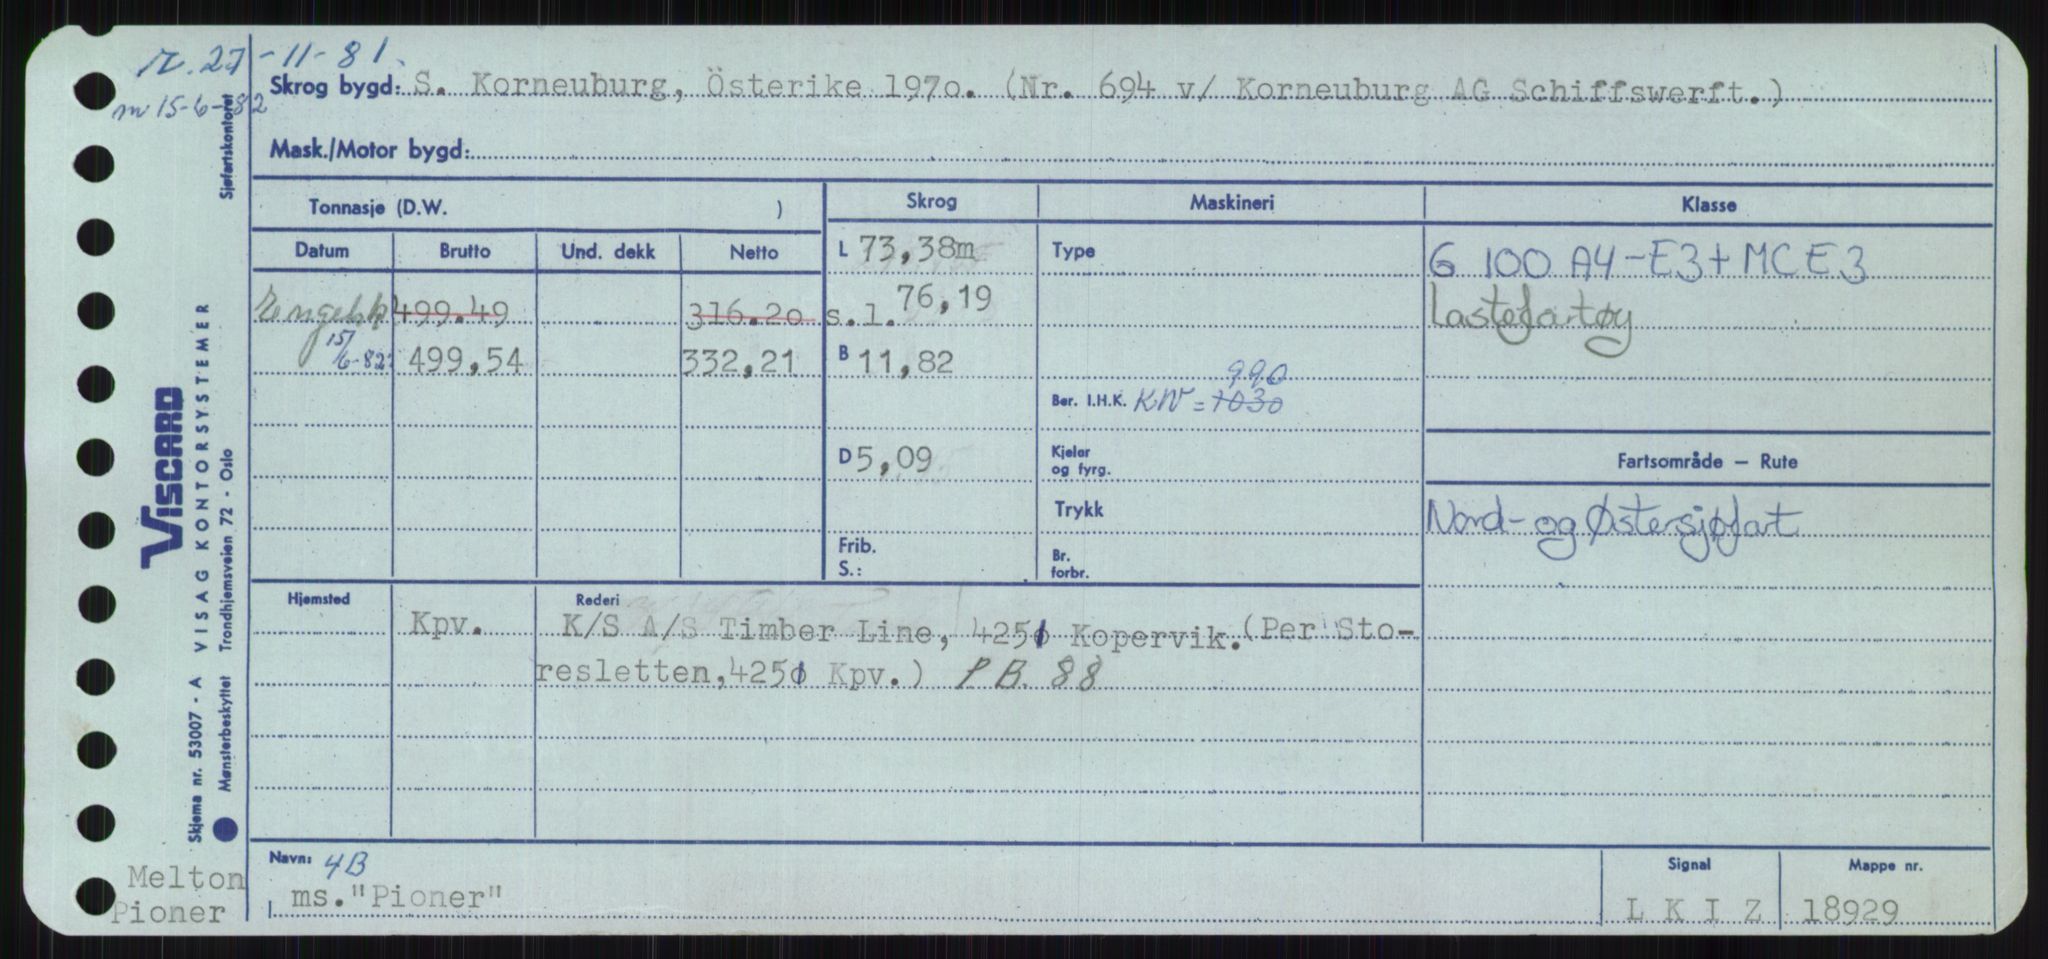 r. 27-11-81.
m 15-6-82
Skrog bygd: S. Korneuburg, Österike 1970. (Nr. 694 v/ Korneuburg AG Schiffswerft.)
Mask./Motor bygd:
Tonnasje (D.W. )
Skrog
Maskineri
Klasse
Datum Brutto Und. dekk Netto
L 73,38m
Type
G 100 A4-E3+MC E3
Engelsk 499.49 316.20
s.l. 76,19
Lastefartøy
15/6-82 499,54 332,21
B 11,82
990
Ber. I.H.K. KW = 1030
D 5,09
Kjeler
og fyrg.
Fartsområde – Rute
Trykk
Nord- og Østersjøfart
Frib.
S.:
Br.
forbr.
Hjemsted Rederi
Kpv. K/S A/S Timber Line, 4250 Kopervik. (Per Sto-
resletten, 4250 Kpv.) P B. 88
Navn: 4B
ms. "Pioner"
Signal
L K I Z
Mappe nr.
18929
Melton
Pioner
VISCARD
VISAG KONTORSYSTEMER
Trondhjemsveien 72 - Oslo
Skjema nr. 53007 - A
Mønsterbeskyttet
Sjøfartskontoret